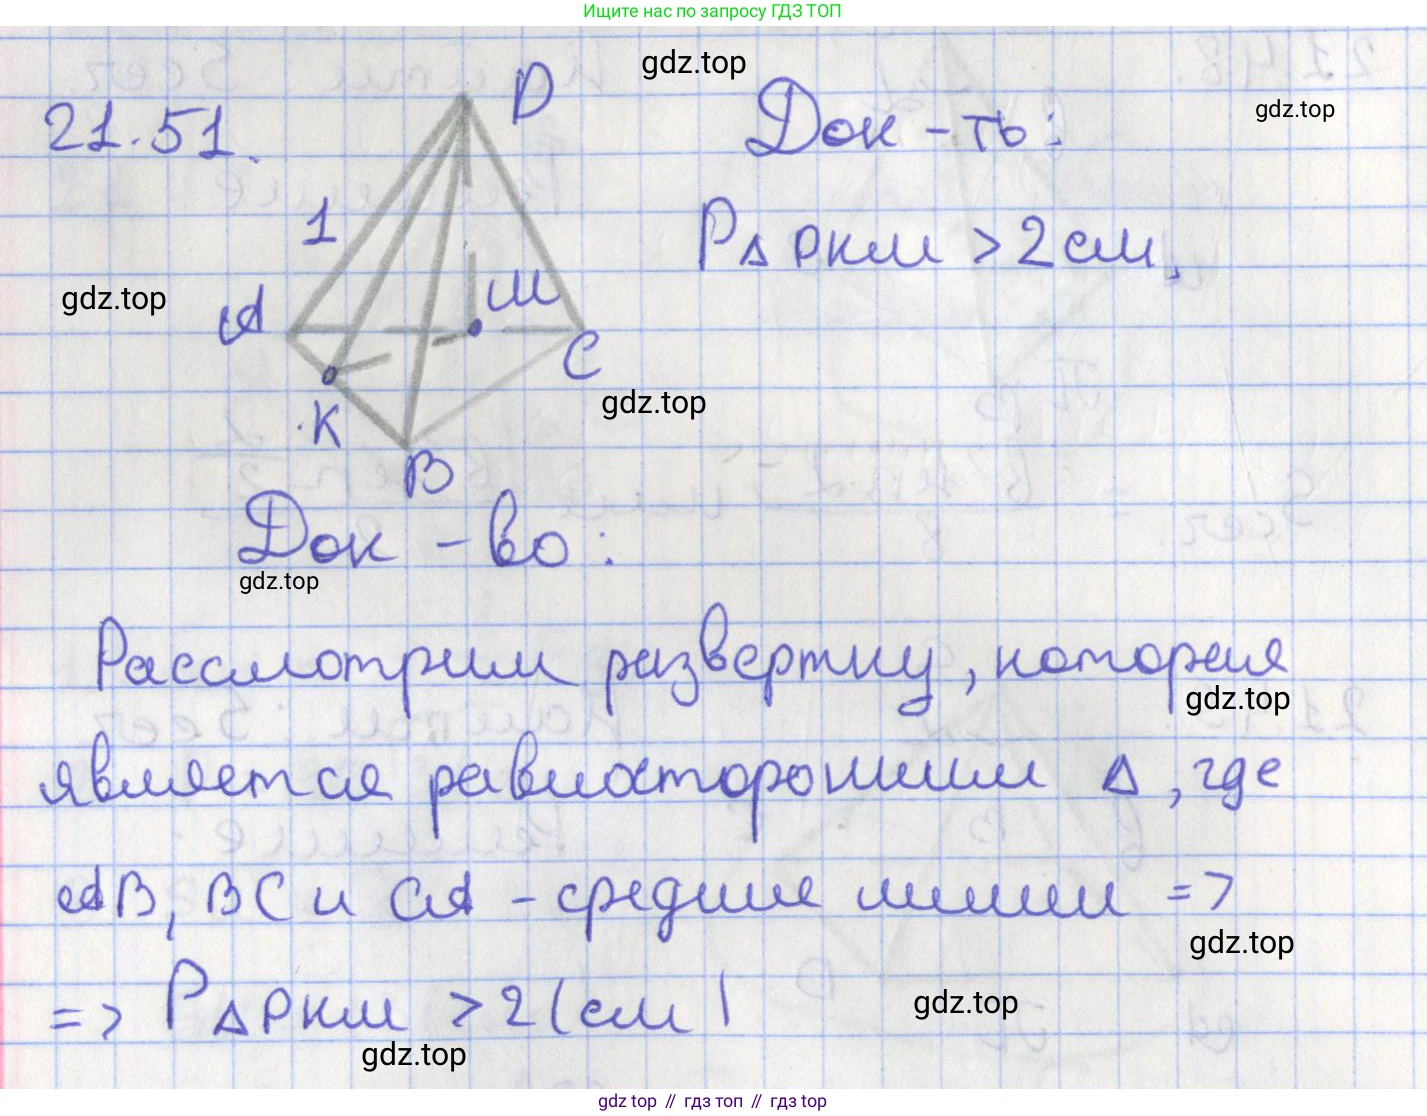 Ищите нас по запросу ГДЗ ТОП
gdz.top
21.51.
D
Док-ть:
gdz.top
1
P△DKM > 2 см.
gdz.top
A
M
C
gdz.top
K
B
Док-во:
gdz.top
Рассмотрим развертку, которая
gdz.top
является равносторонним △, где
AB, BC и CA - средние линии =>
gdz.top
=> P△DKM > 2 (см)
gdz.top
gdz.top
gdz top // гдз топ // гдз top